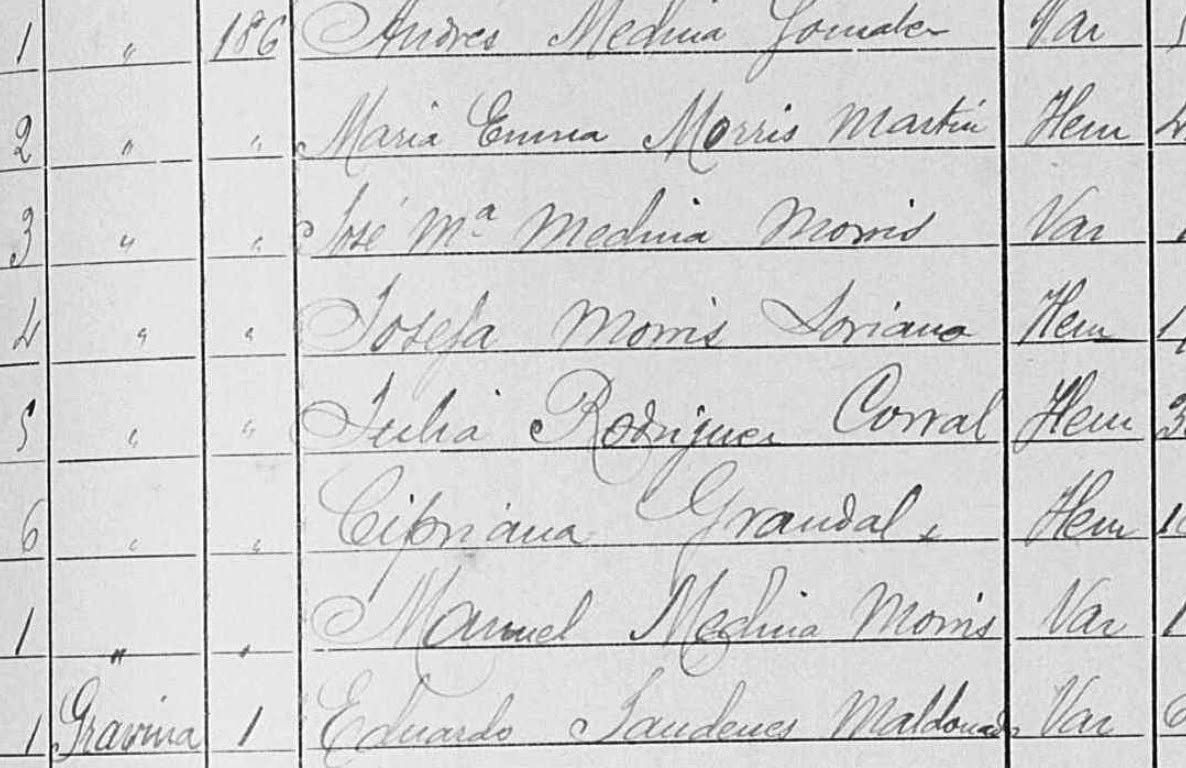 1 " 186 Andres Medina Gonzalez Var
2 " " Maria Emma Morris Martin Hem
3 " " José Mª Medina Morris Var
4 " " Josefa Morris Soriano Hem
5 " " Julia Rodriguez Corral Hem
6 " " Cipriana Grandal x Hem
1 " " Manuel Medina Morris Var
1 Gravina 1 Eduardo Maldonado Var